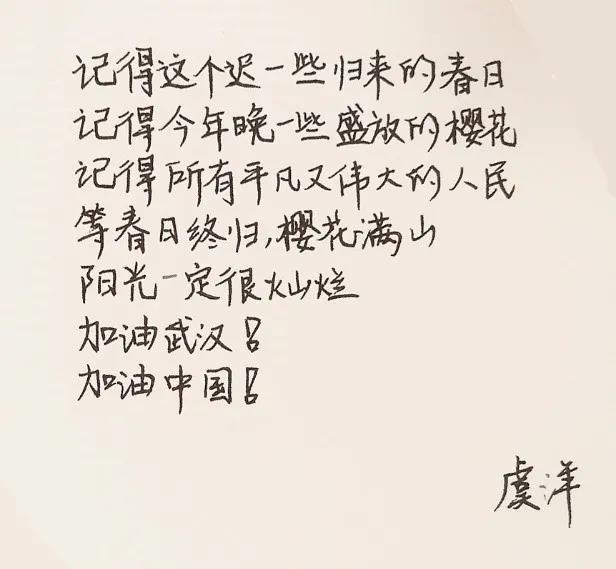 记得这个迟一些归来的春日
记得今年晚一些盛放的樱花
记得所有平凡又伟大的人民
等春日终归,樱花满山
阳光一定很灿烂
加油武汉!
加油中国!
虞洋